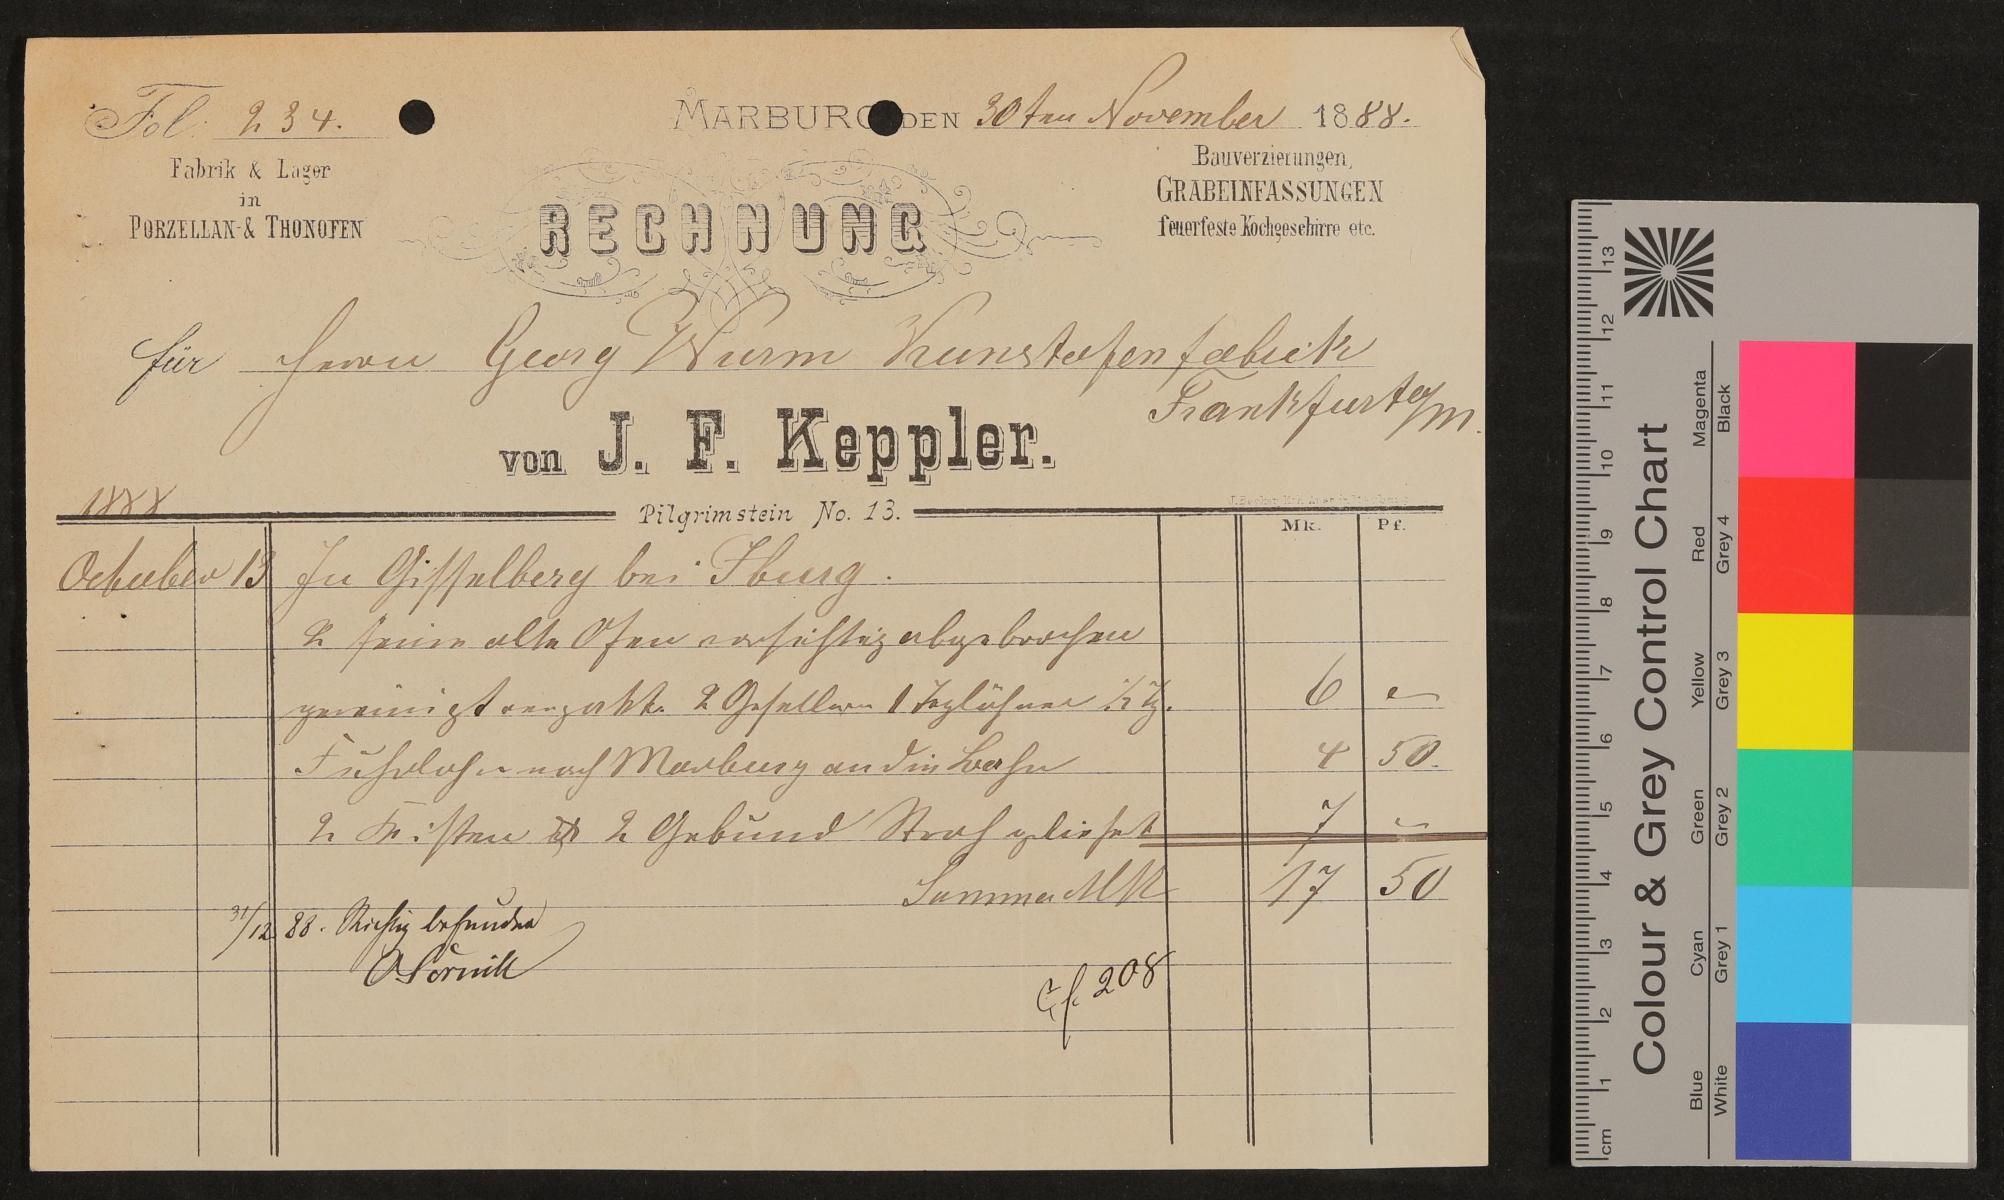 Fol. 234.
MARBURG DEN 30ten November 1888.
Fabrik & Lager
in
PORZELLAN- & THONOFEN
RECHNUNG
Bauverzierungen,
GRABEINFASSUNGEN
feuerfeste Kochgeschirre etc.
für Herrn Georg Wurm Kunstofenfabrik
Frankfurt a/m.
von J. F. Keppler.
1888
Pilgrimstein No. 13.
Mk. Pf.
October 13 In Gisselberg bei
2 feine alte Ofen vorsichtig abgebrochen
gereinigt verpakt. 2 Gesellen 1 Taglöhner ½ Tg. 6 –
Fuhrlohn nach Marburg an die Bahn 4 50.
2 Kisten 2 Gebund Stroh geliefet 7 –
Summa Mk 17 50
31/12 88. Richtig befunden
Cf. 208
Colour & Grey Control Chart
Blue Cyan Green Yellow Red Magenta
White Grey 1 Grey 2 Grey 3 Grey 4 Black
cm 1 2 3 4 5 6 7 8 9 10 11 12 13